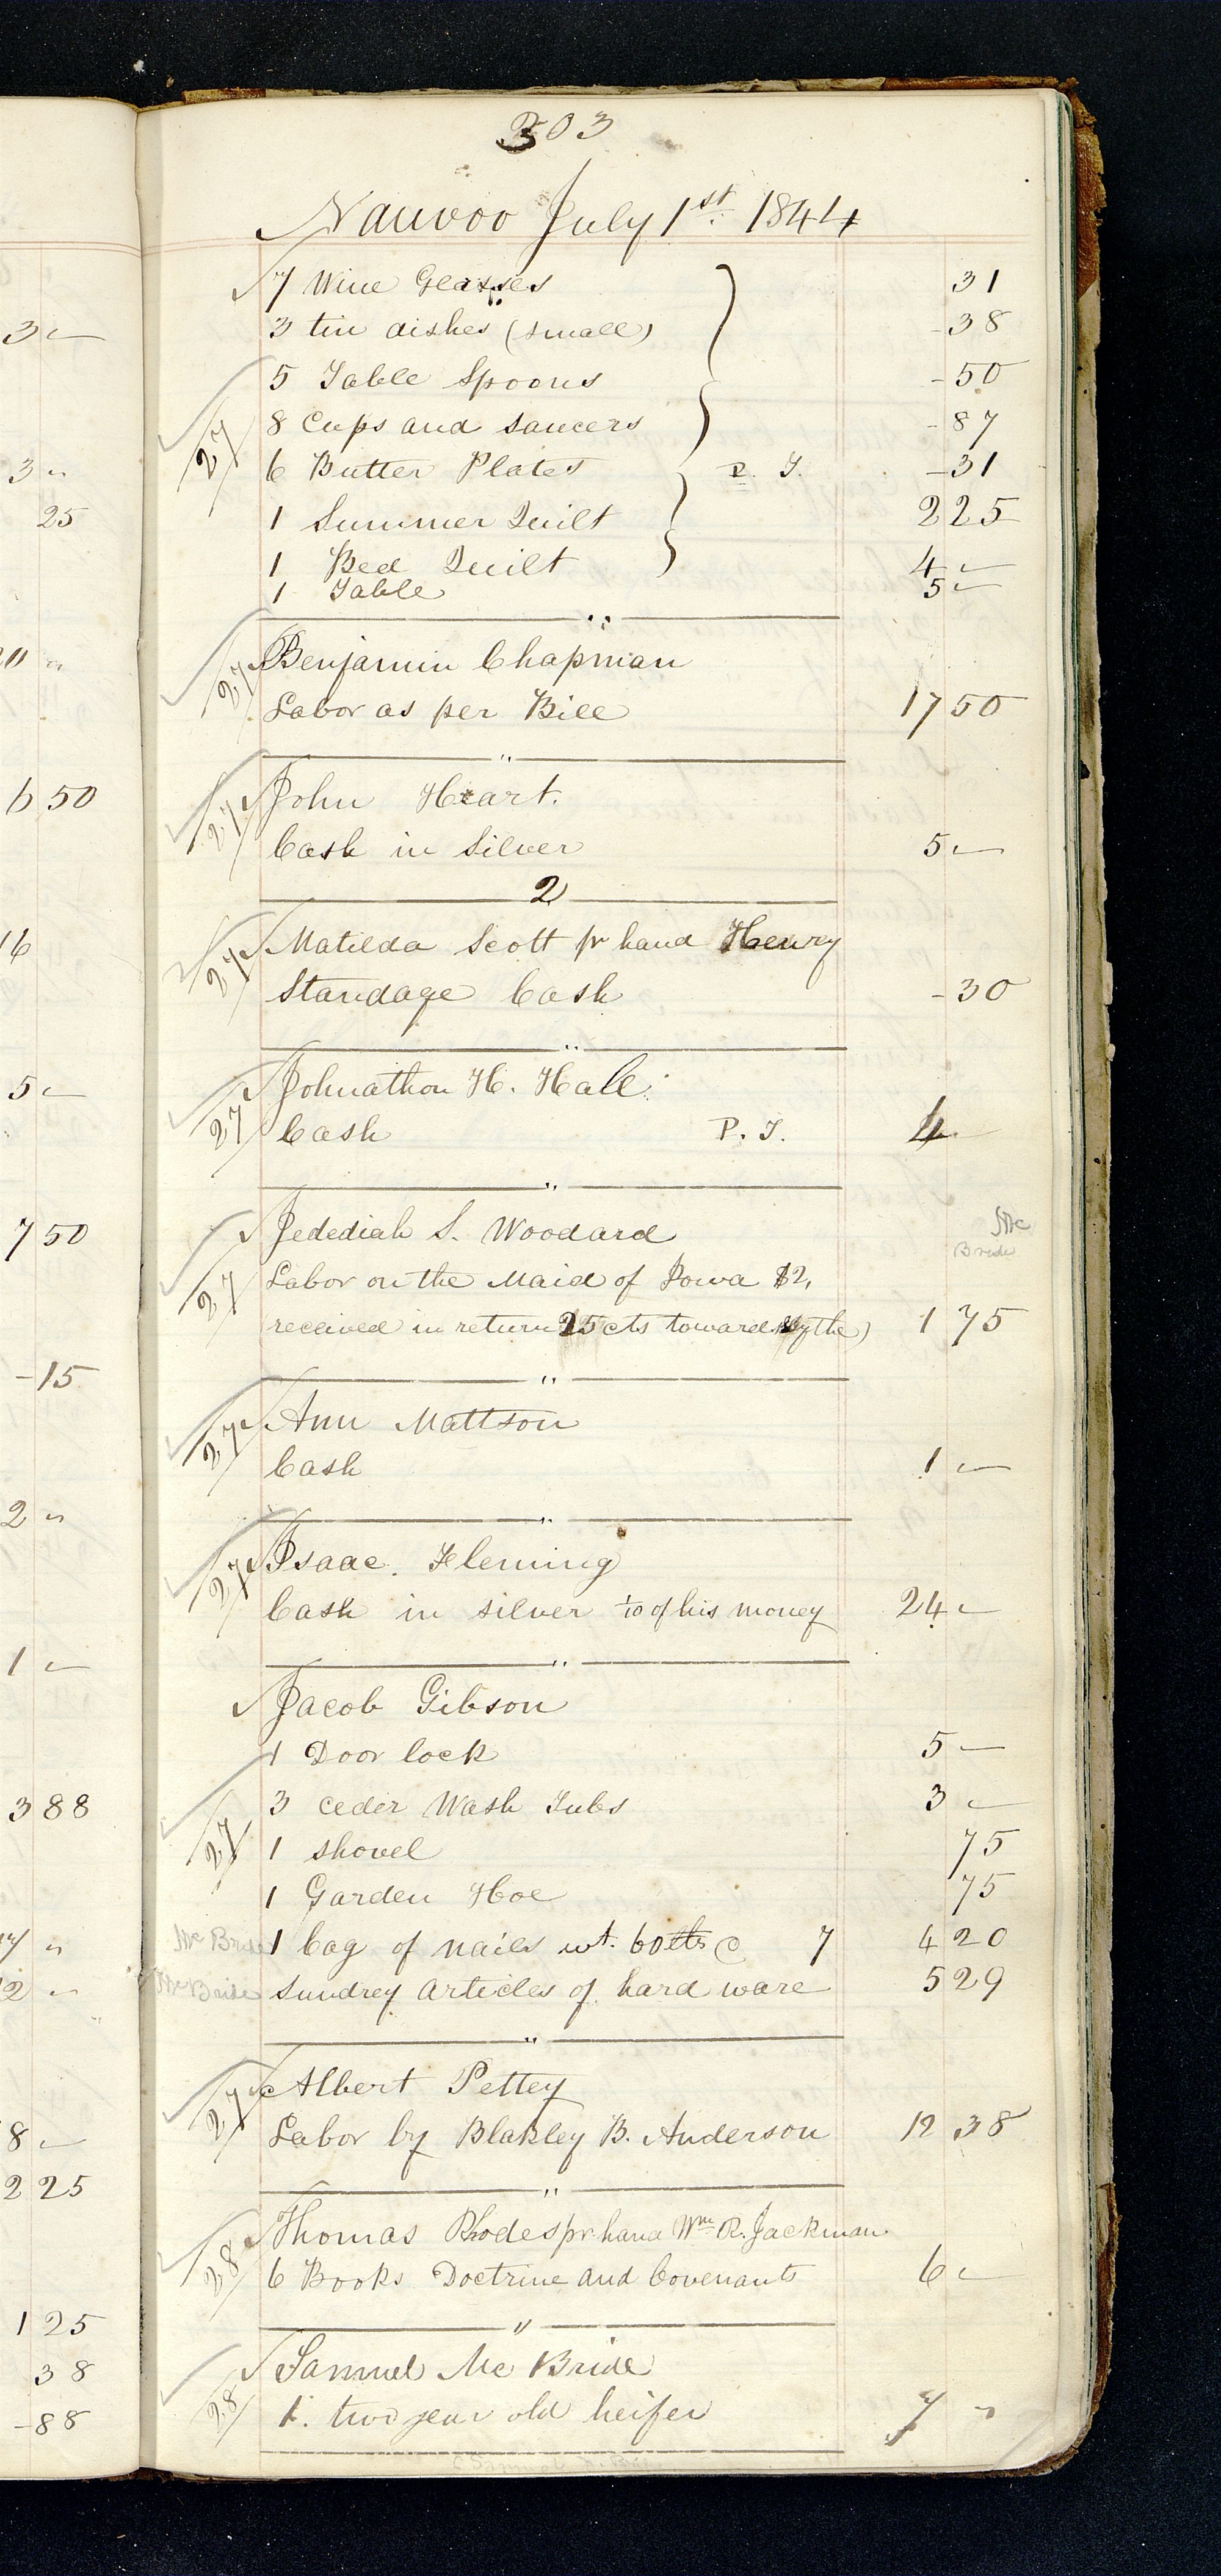 303
Nauvoo July 1st 1844
7 Wine Glasses 31
3 tin dishes (small) -38
5 Table Spoons -50
8 Cups and saucers -87
27
6 Butter Plates P. T. -31
1 Summer Quilt 2 25
1 Bed Quilt 4 -
1 Table 5 -
"
27 Benjamin Chapman
Labor as per Bill 17 50
"
27 John Heart.
Cash in Silver 5 -
2
27 Matilda Scott pr hand Henry
Standage Cash -30
"
Johnathon H. Hale
27 Cash P. T. 4 -
"
Jedediah S. Woodard Mc
Bride
27 Labor on the Maid of Iowa $2,
received in return 25 cts towards Sythe) 1 75
"
27 Ann Mattson
Cash 1 -
"
27 Isaac. Fleming
Cash in silver 1/10 of his money 24 -
"
Jacob Gibson
1 Door lock 5 -
3 ceder Wash Tubs 3 -
27 1 shovel 75
1 Garden Hoe 75
Mc Bride 1 bag of nails wt. 60 lbs @ 7 4 20
Mc Bride Sundrey Articles of hard ware 5 29
"
27 Albert Pettey
Labor by Blakley B. Anderson 12 38
"
Thomas Rhodes pr hand Wm R. Jackman
28 6 Books Doctrine and Covenants 6 -
"
Samuel Mc Bride
28 1. two year old heifer 7 "
3 -
3 "
25
"
6 50
16
5 -
7 50
-15
2 "
1 -
3 88
"
2 "
8 -
2 25
1 25
38
-88